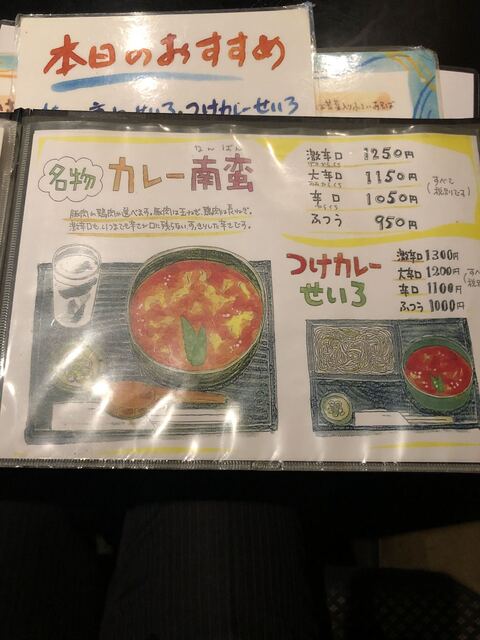 本日のおすすめ
せいろ、つけカレーせいろ
名物
カレー南蛮
なんばん
豚肉か鶏肉が選べます。豚肉は玉ねぎ、鶏肉は長ねぎ。
激辛口も、いつまでも辛さが口に残らない、すっきりした辛さです。
激辛口 1250円
大辛口 1150円
辛口 1050円
ふつう 950円
(すべて
税別です)
つけカレー
せいろ
激辛口 1300円
大辛口 1200円
辛口 1100円
ふつう 1000円